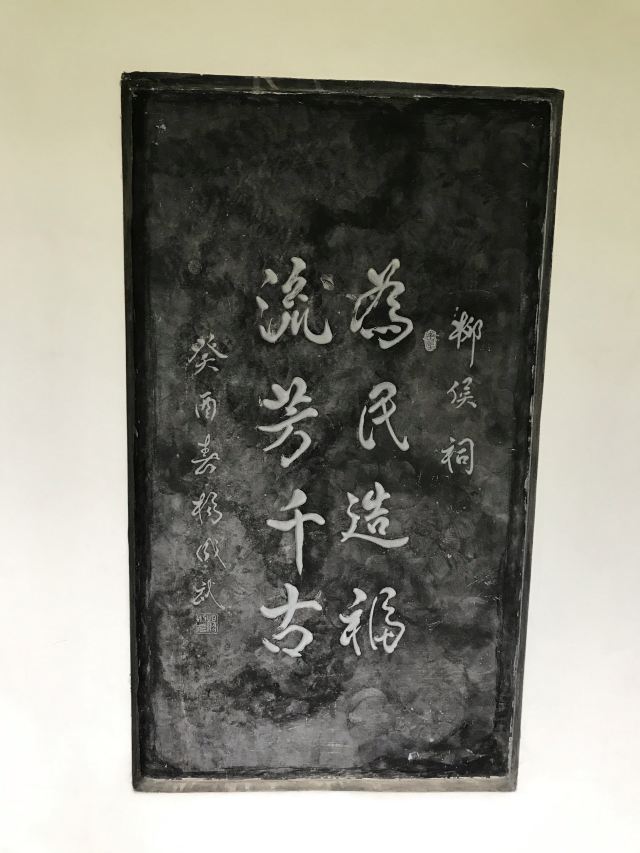 柳侯祠
為民造福
流芳千古
癸酉春楊成武